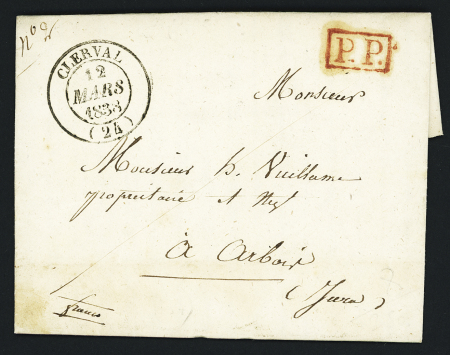 CLERVAL
12
MARS
1838
(24)
P.P.
Monsieur
Monsieur h. Vuillame
propriétaire et
à Arbois
(Jura)
franco